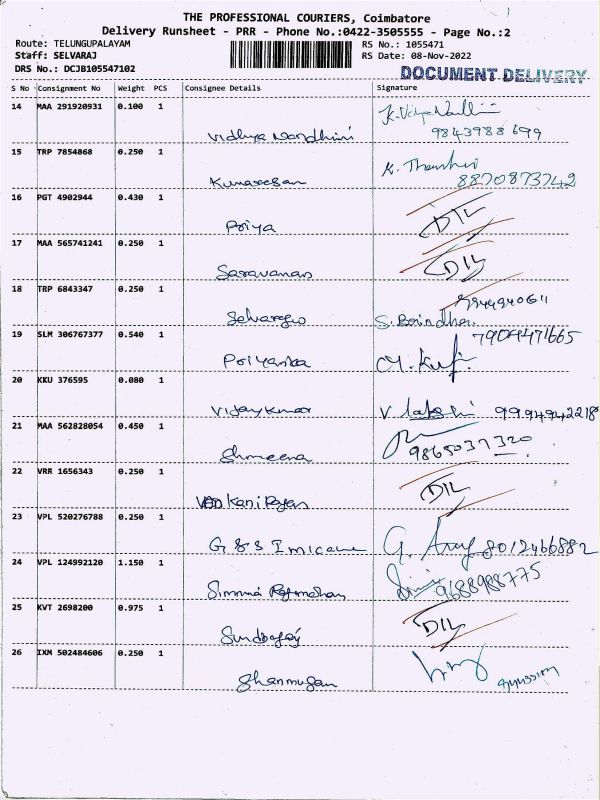 THE PROFESSIONAL COURIERS, Coimbatore
Delivery Runsheet - PRR - Phone No.:0422-3505555 - Page No.:2
Route: TELUNGUPALAYAM
Staff: SELVARAJ
DRS No.: DCJB105547102
RS No.: 1055471
RS Date: 08-Nov-2022
DOCUMENT DELIVERY
S No Consignment No Weight PCS Consignee Details Signature
14 MAA 291920931 0.100 1
Vidhya Nandhini 9843988699
15 TRP 7854868 0.250 1
Kumaresan 8870873742
16 PGT 4902944 0.430 1
Priya DIL
17 MAA 565741241 0.250 1
Saravanan DIL
18 TRP 6843347 0.250 1
19 SLM 306767377 0.540 1 7904471665
Priyanka
20 KKU 376595 0.080 1
Vijaykumar V. 9994942218
21 MAA 562828054 0.450 1
Shmeena 9865037320
22 VRR 1656343 0.250 1
DIL
23 VPL 520276788 0.250 1
G & S 8012466882
24 VPL 124992120 1.150 1
9688988775
25 KVT 2698200 0.975 1
DIL
26 IXM 502484606 0.250 1
Shanmugan